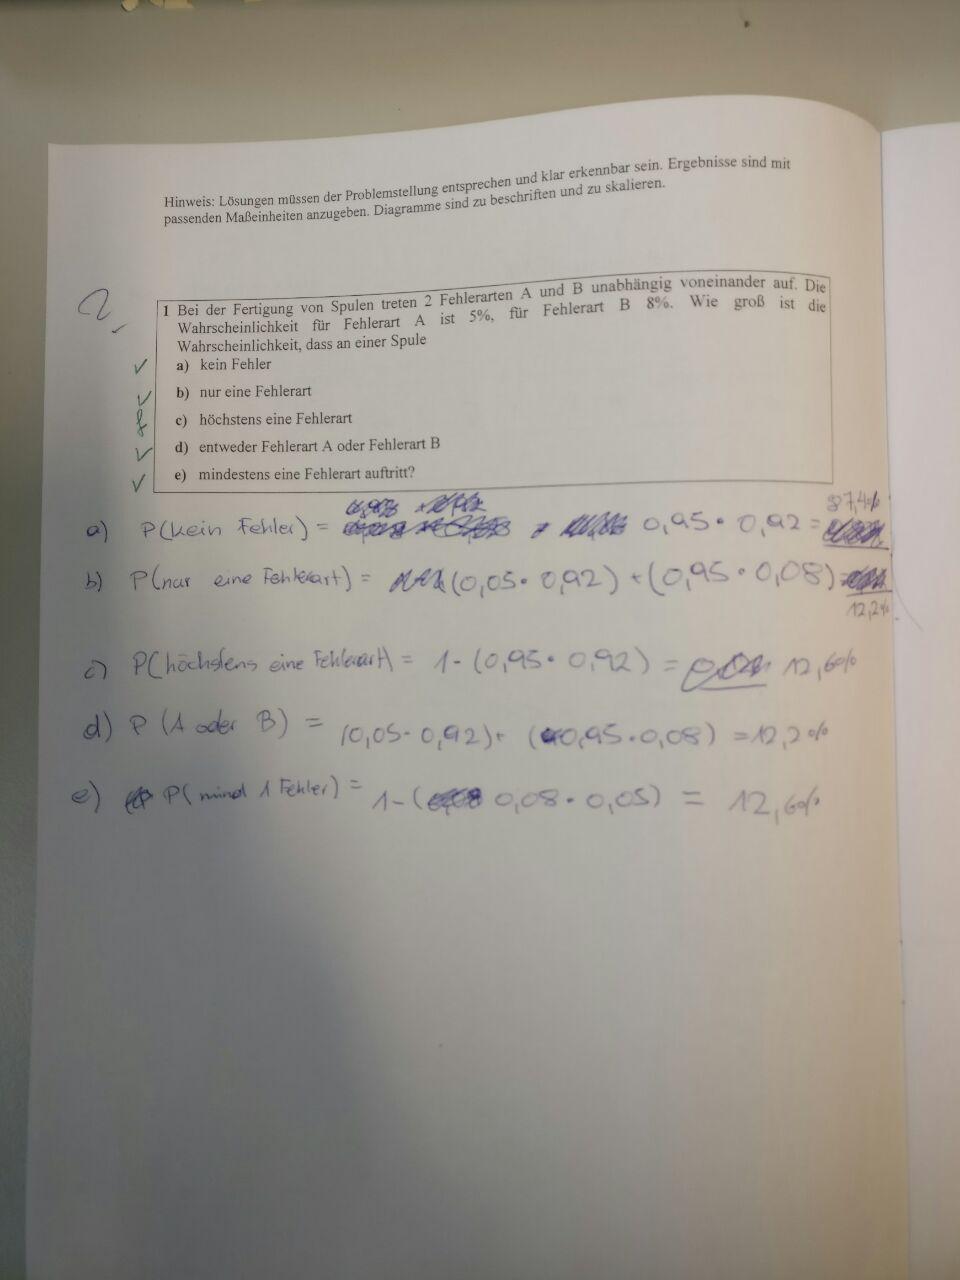 Hinweis: Lösungen müssen der Problemstellung entsprechen und klar erkennbar sein. Ergebnisse sind mit
passenden Maßeinheiten anzugeben. Diagramme sind zu beschriften und zu skalieren.
2,
1 Bei der Fertigung von Spulen treten 2 Fehlerarten A und B unabhängig voneinander auf. Die
Wahrscheinlichkeit für Fehlerart A ist 5%, für Fehlerart B 8%. Wie groß ist die
Wahrscheinlichkeit, dass an einer Spule
✓ a) kein Fehler
✓ b) nur eine Fehlerart
f c) höchstens eine Fehlerart
✓ d) entweder Fehlerart A oder Fehlerart B
✓ e) mindestens eine Fehlerart auftritt?
87,4%
a) P(kein Fehler) = 0,95 · 0,92 =
b) P(nur eine Fehlerart) = (0,05 · 0,92) + (0,95 · 0,08) =
12,2%
c) P(höchstens eine Fehlerart) = 1 - (0,95 · 0,92) = 12,6%
d) P (A oder B) = (0,05 · 0,92) + (0,95 · 0,08) = 12,2%
e) P(mind 1 Fehler) = 1 - ( 0,08 · 0,05) = 12,6%